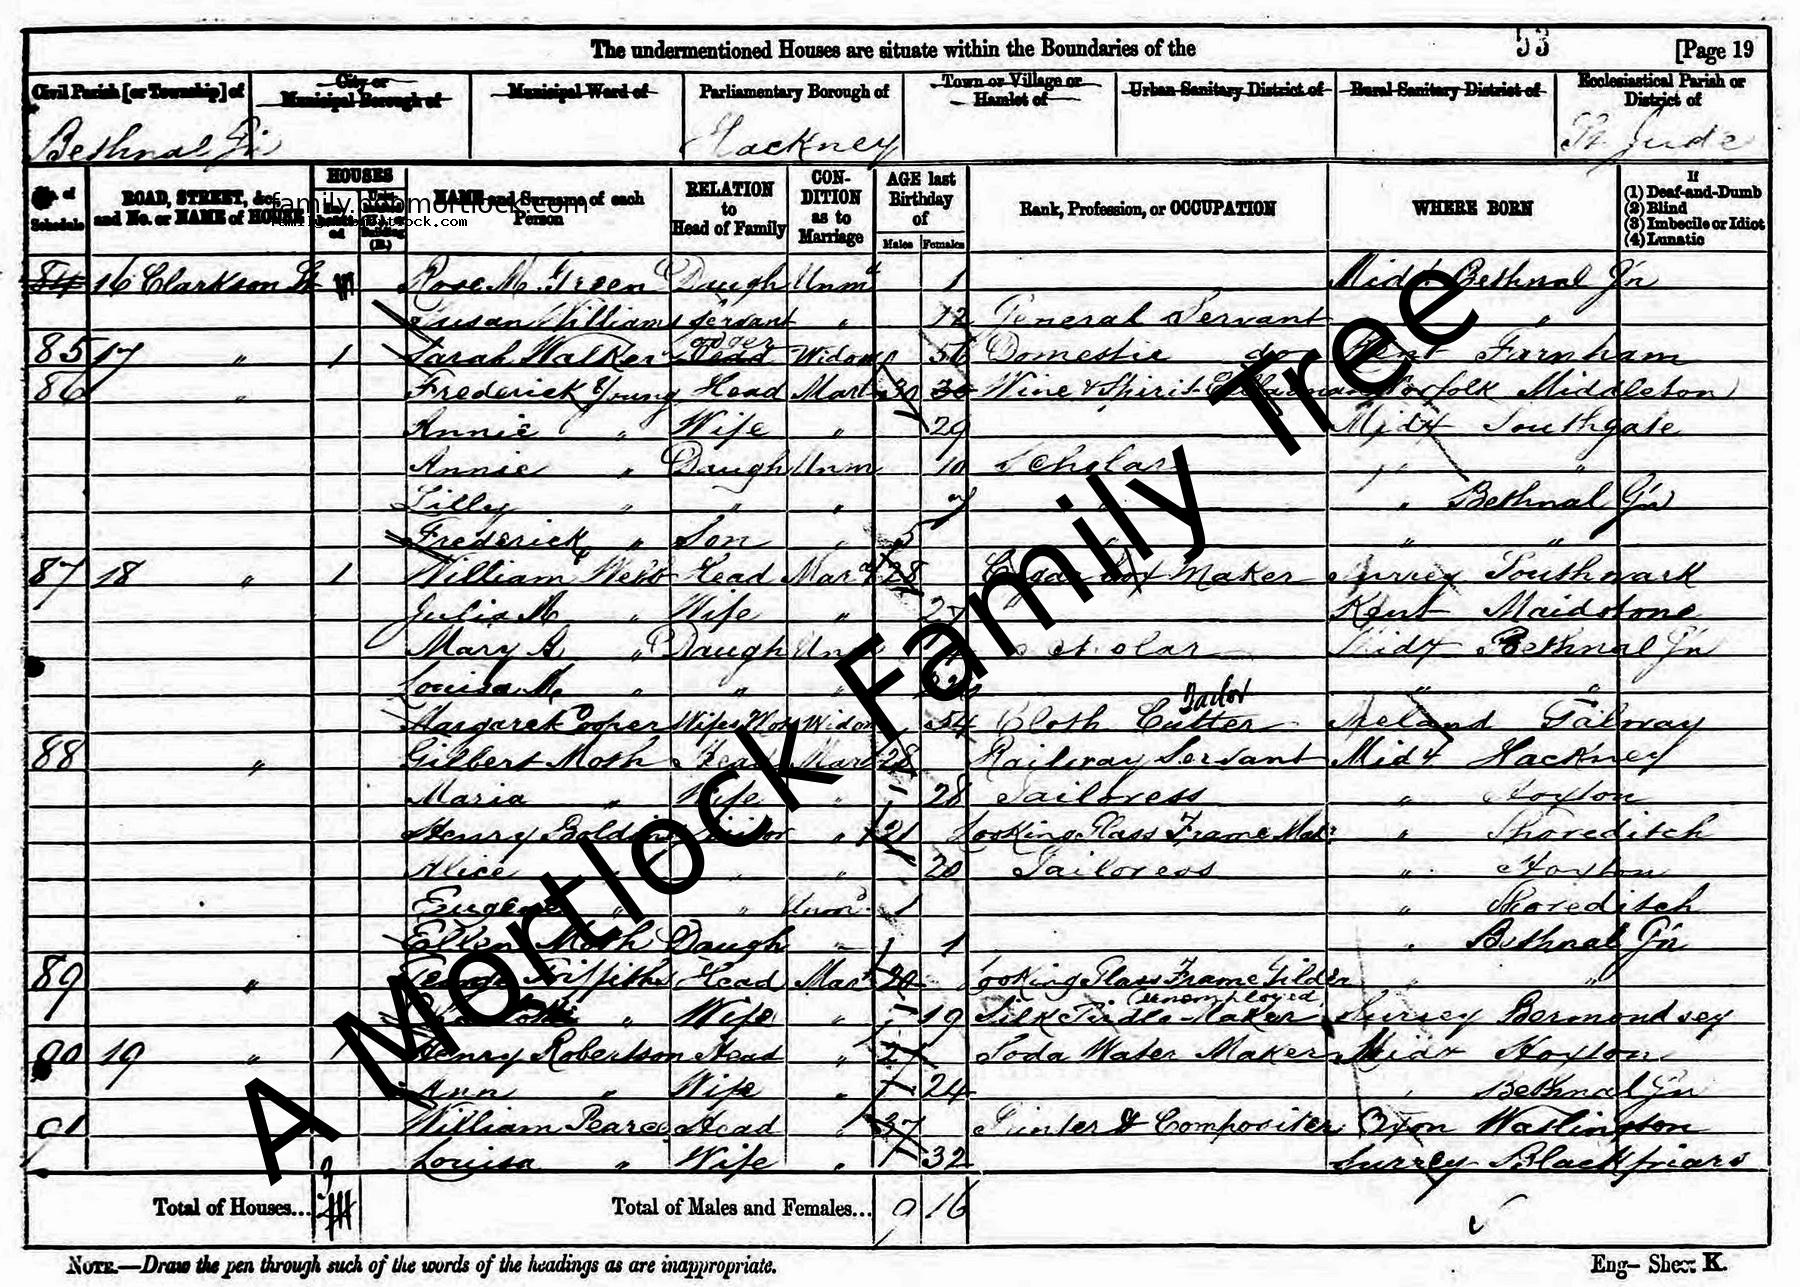 The undermentioned Houses are situate within the Boundaries of the 53 [Page 19
Civil Parish [or Township] of City or Municipal Borough of Municipal Ward of Parliamentary Borough of Town or Village or Hamlet of Urban Sanitary District of Rural Sanitary District of Ecclesiastical Parish or District of
Bethnal Gn Hackney St Jude
No. of Schedule ROAD, STREET, &c., and No. or NAME of HOUSE HOUSES NAME and Surname of each Person RELATION to Head of Family CON-DITION as to Marriage AGE last Birthday of Males Females Rank, Profession, or OCCUPATION WHERE BORN If (1) Deaf-and-Dumb (2) Blind (3) Imbecile or Idiot (4) Lunatic
84 16 Clarkson St Rose M. Green Daugh Unmd 1 Midx Bethnal Gn
Susan Williams Servant " 12 General Servant "
85 17 " 1 Sarah Walker Lodger Head Widow 56 Domestic do Kent Farnham
86 " Frederick Young Head Mard 30 30 Wine & Spirit Cellarman Norfolk Middleton
Annie " Wife " 29 Midx Southgate
Annie " Daugh Unm 10 Scholar " "
Lilley " " " 7 " " Bethnal Gn
Frederick " Son " 5 " " "
87 18 " 1 William Webb Head Mard 28 Cigar Box Maker Surrey Southwark
Julia M " Wife " 27 Kent Maidstone
Mary A " Daugh Unm Scholar Midx Bethnal Gn
Louisa M " " " " "
Margaret Cooper Wifes Mor Widow 54 Cloth Cutter Tailor Ireland Galway
88 " Gilbert Moth Head Mard 28 Railway Servant Midx Hackney
Maria " Wife " 28 Tailoress " Hoxton
Henry Visitor " 21 Looking Glass Frame Makr " Shoreditch
Alice " " " 20 Tailoress " Hoxton
Eugene " " Unmd 1 " Shoreditch
Ellen Moth Daugh " 1 " Bethnal Gn
89 " George Griffiths Head Mard 20 Looking Glass Frame Gilder " "
" Wife " 19 Silk Girdle Maker (unemployed) Surrey Bermondsey
90 19 " 1 Henry Robertson Head " 27 Soda Water Maker Midx Hoxton
Ann " Wife " 24 " Bethnal Gn
91 William Pearce Head " 37 Printer & Compositer Oxon Watlington
Louisa " Wife " 32 Surrey Blackfriars
Total of Houses... 3 Total of Males and Females... 9 16
NOTE.—Draw the pen through such of the words of the headings as are inappropriate. Eng– Sheet K.
A Mortlock Family Tree